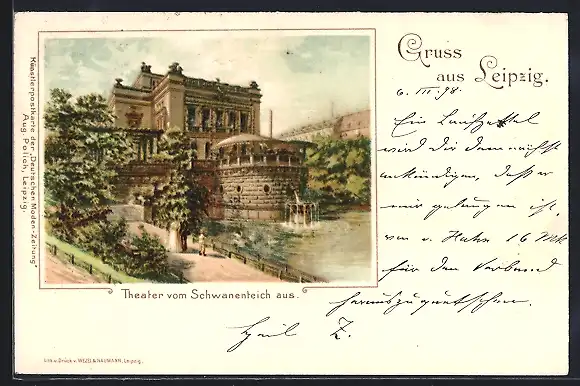 Gruss
aus Leipzig.
6. III. 98.
Ein Laufzettel
wird Dir demnächst
ankündigen, daß er
mir gelungen ist,
von v. Hahn 16 Mk
für den Verband
herauszuquetschen.
Heil Z.
Künstlerpostkarte der „Deutschen Moden-Zeitung"
Aug. Polich, Leipzig.
Theater vom Schwanenteich aus.
Lith. u. Druck v. WEZEL & NAUMANN, Leipzig.